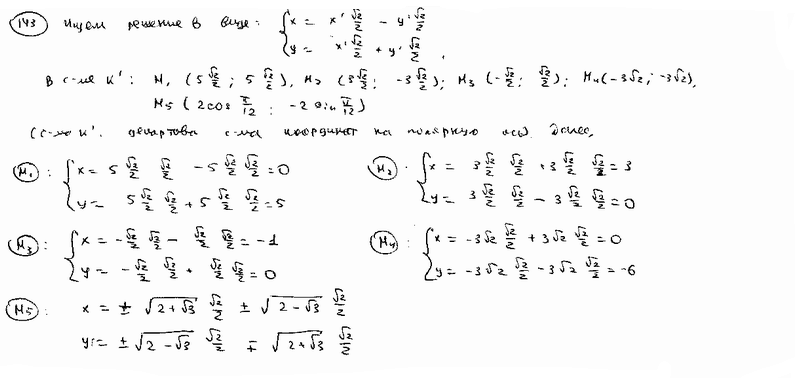 143 Ищем решение в виде: { x = x' √2/2 - y' √2/2
y = x' √2/2 + y' √2/2,
В с-ме K': M₁ (5 √2/2 ; 5 √2/2), M₂ (3 √2/2 ; -3 √2/2); M₃ (-√2/2 ; √2/2); M₄ (-3√2 ; -3√2),
M₅ (2cos π/12 ; -2 sin π/12)
(с-ма K': декартова с-ма координат на полярную ось). Далее,
M₁: { x = 5 √2/2 √2/2 - 5 √2/2 √2/2 = 0
y = 5 √2/2 √2/2 + 5 √2/2 √2/2 = 5
M₂: { x = 3 √2/2 √2/2 + 3 √2/2 √2/2 = 3
y = 3 √2/2 √2/2 - 3 √2/2 √2/2 = 0
M₃: { x = -√2/2 √2/2 - √2/2 √2/2 = -1
y = -√2/2 √2/2 + √2/2 √2/2 = 0
M₄: { x = -3√2 √2/2 + 3√2 √2/2 = 0
y = -3√2 √2/2 - 3√2 √2/2 = -6
M₅: x = ± √(2+√3) √2/2 ± √(2-√3) √2/2
y = ± √(2-√3) √2/2 ∓ √(2+√3) √2/2